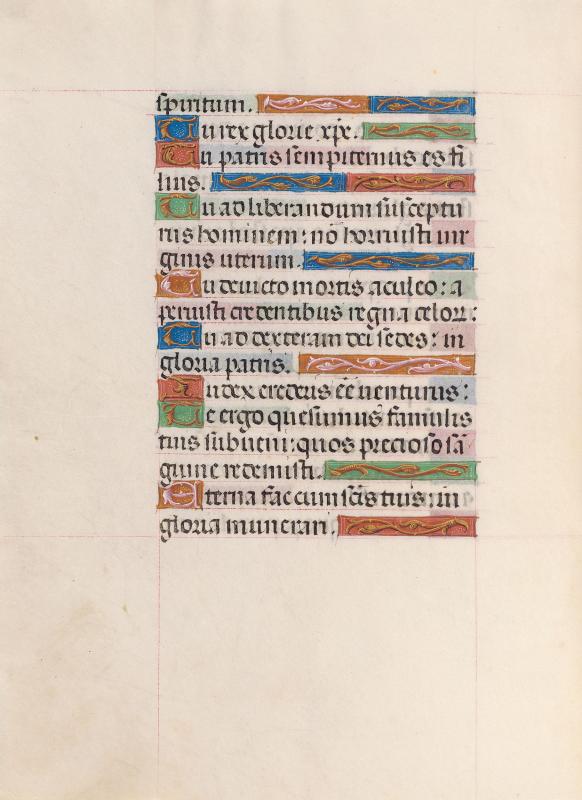 spiritum.
Tu rex glorie xp̄e.
Tu patris sempiternus es fi
lius.
Tu ad liberandum susceptu
rus hominem: nō horruisti vir
ginis uterum.
Tu devicto mortis aculeo: a
peruisti credentibus regna celorꝝ:
Tu ad dexteram dei sedes: in
gloria patris.
Iudex crederis eē venturus:
Te ergo quesumus famulis
tuis subueni: quos precioso sā
guine redemisti.
Eterna fac cum scīs tuis: in
gloria munerari.